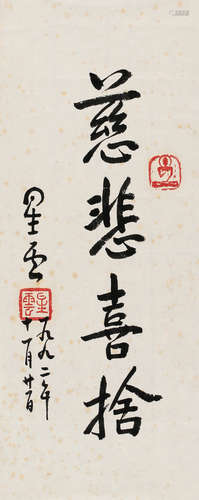 慈悲喜捨
星雲
一九九二年
十一月廿二日
星雲